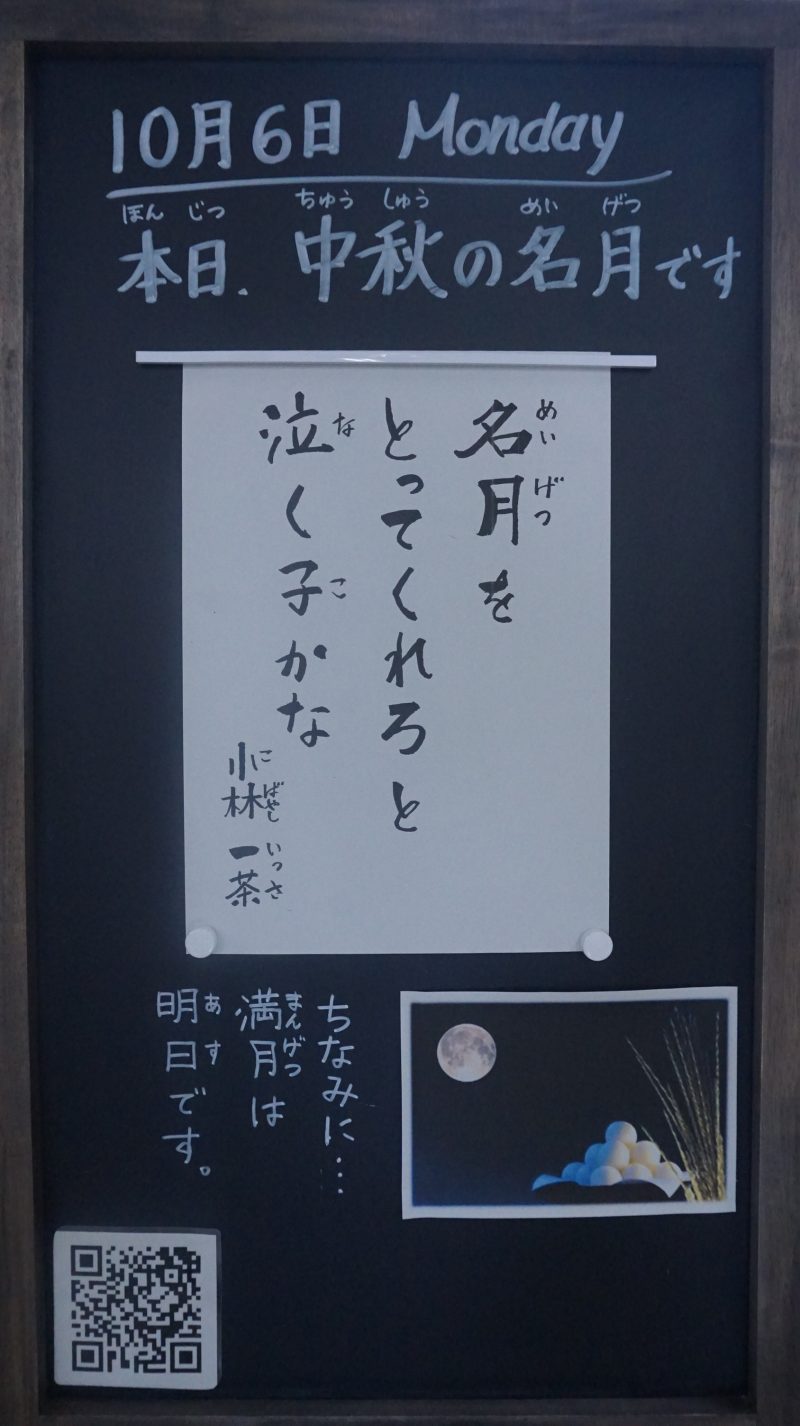 10月6日 Monday
ほん じつ ちゅう しゅう めい げつ
本日、中秋の名月です
名月を
めい げつ
とってくれろと
泣く子かな
な こ
小林 一茶
こばやし いっさ
ちなみに…
満月は
まんげつ
明日です。
あす